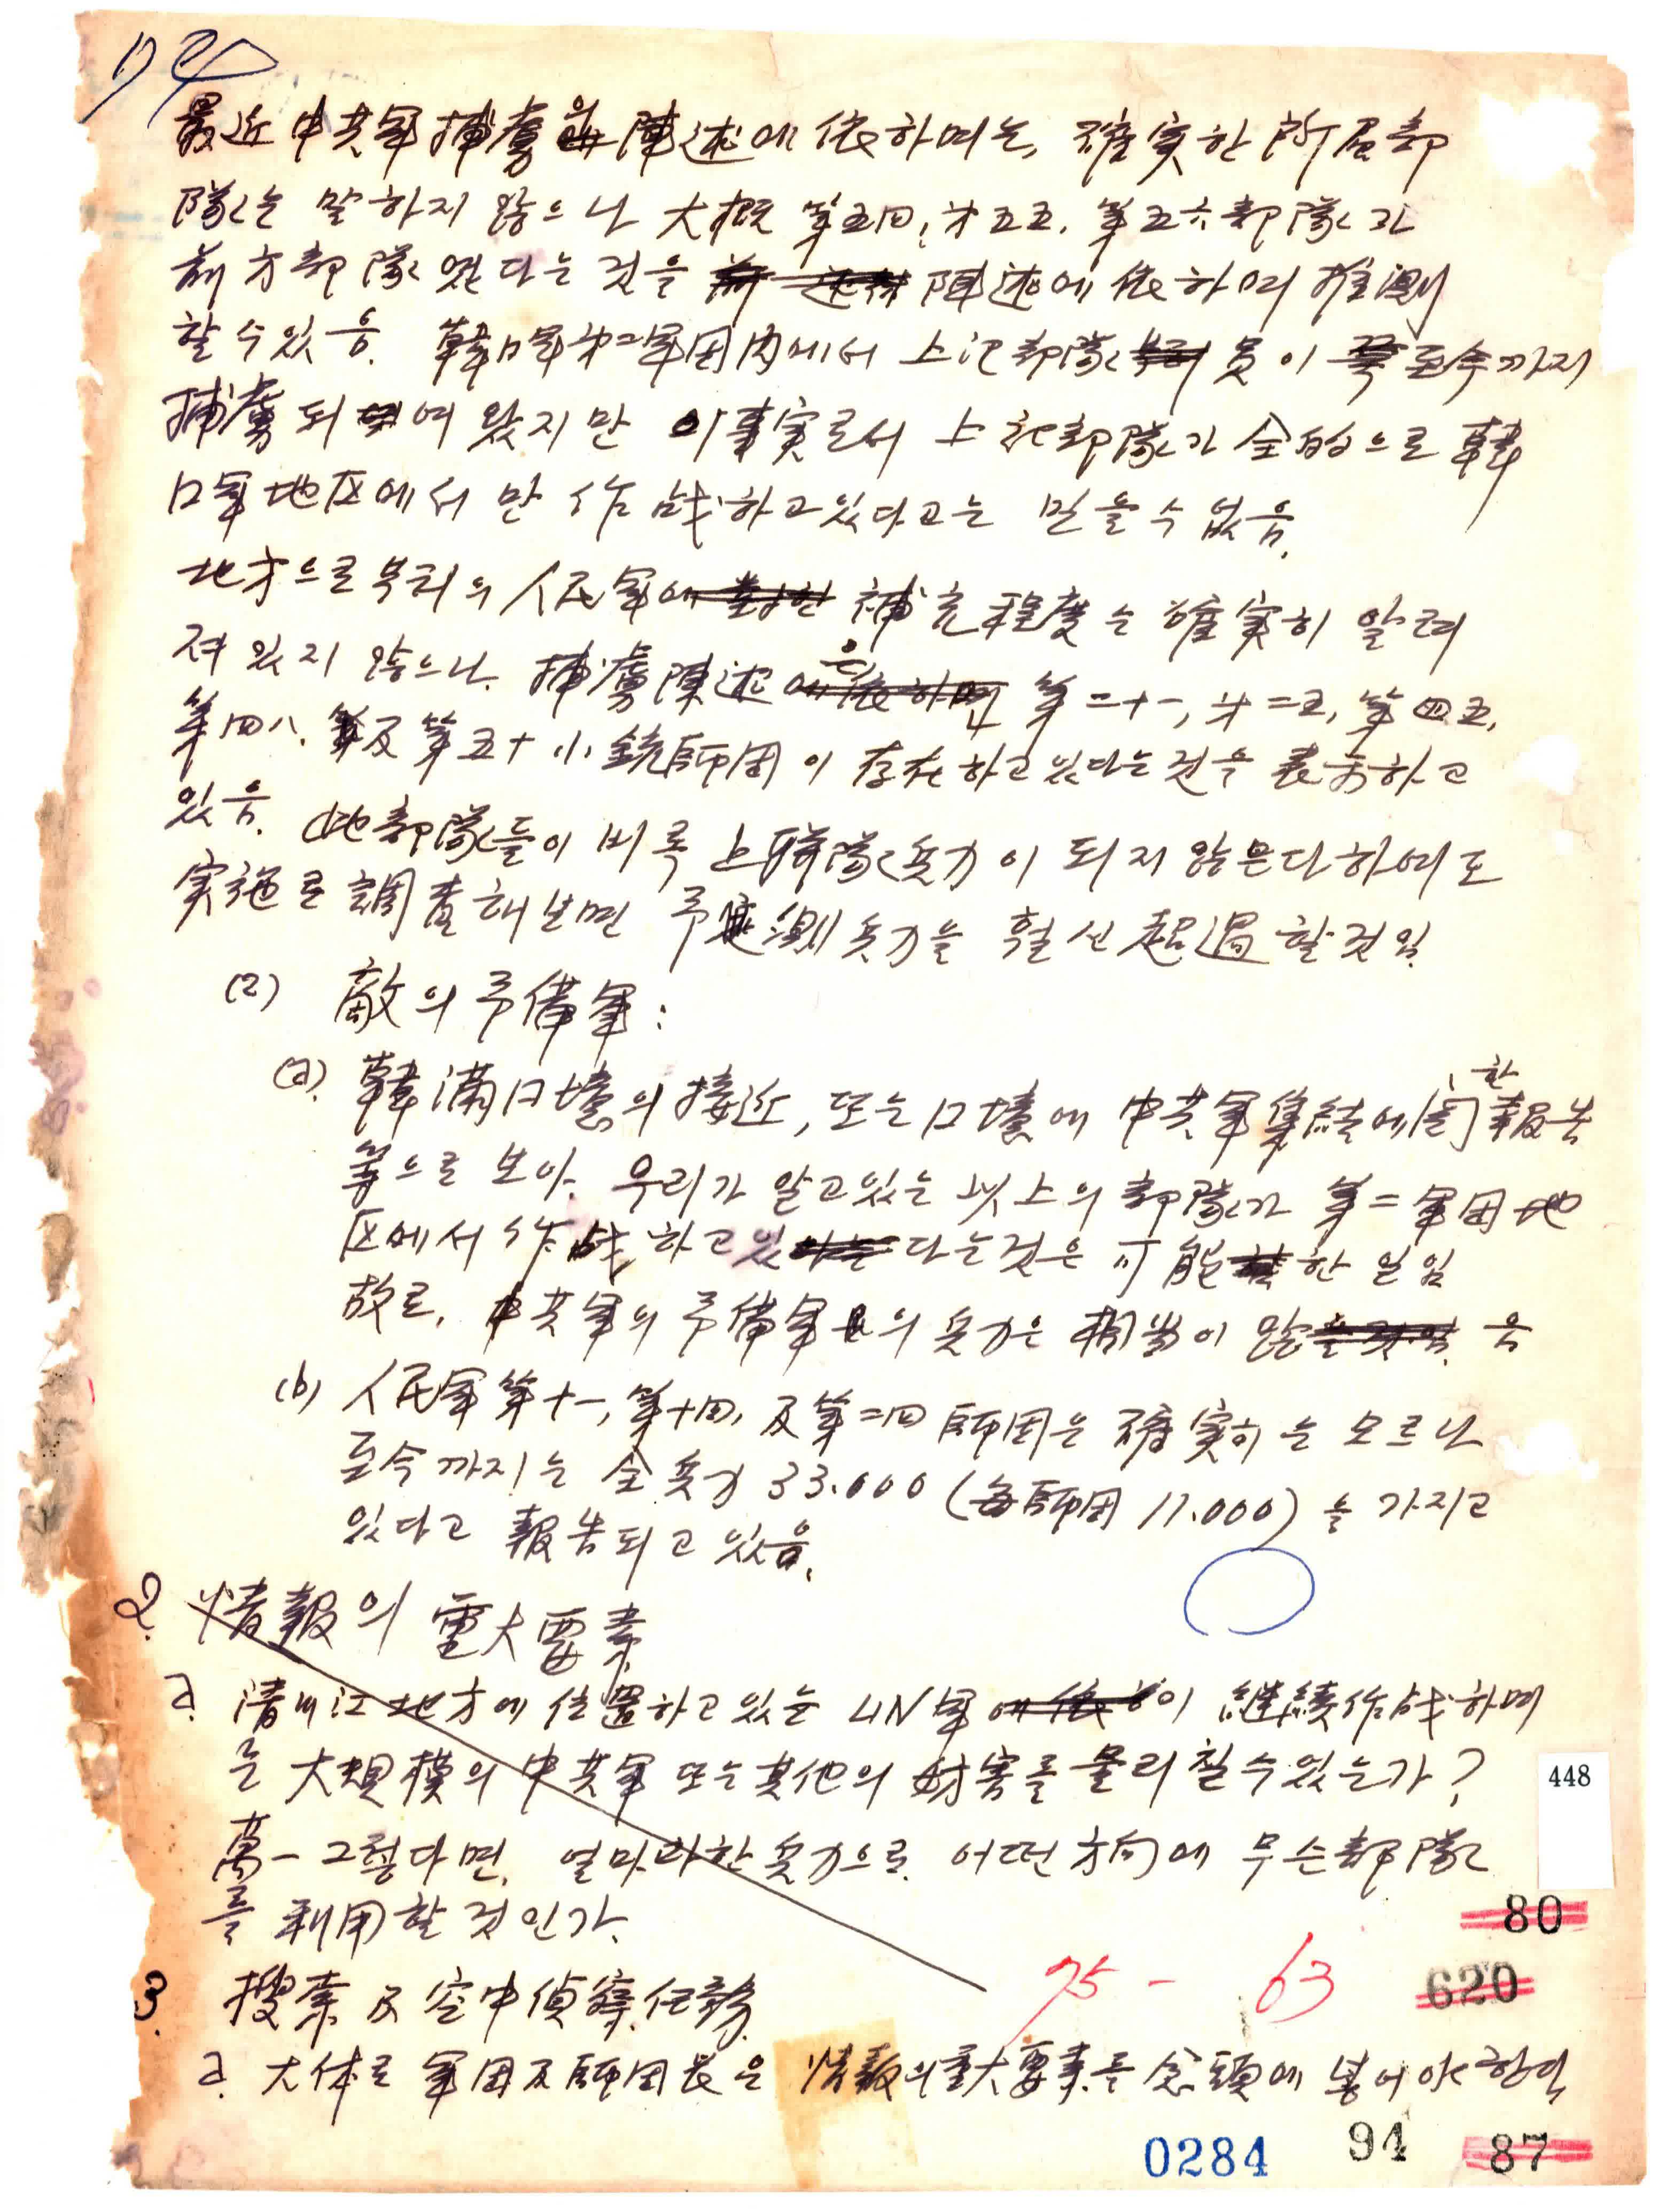 最近 中共軍 捕虜의 陳述에 依하며는, 確実한 所属部
隊는 말하지 않으나 大概 第五四, 才五五, 第五六部隊가
前方部隊였다는 것을 陳述에 依하여 推測
할수있음. 韓口軍才二軍団内에서 上記部隊員이 至今까지
捕虜되여 왔지만 이事実로서 上記部隊가 全的으로 韓
口軍地区에서만 作战하고있다고는 믿을수 없음.
地方으로부터의 人民軍 補充程度는 確実히 알려
져있지 않으나, 捕虜陳述은 第二十一, 才二五, 第四五,
第四八, 及第五十小銃師団이 存在하고있다는것을 表示하고
있음. 此部隊들이 비록 上 聯隊兵力이 되지않은다하여도
実施로 調査해보면 予測兵力을 훨신 超過할것임.
(2) 敵의予備軍:
(a). 韓満口境의 接近, 또는口境에 中共軍集結에関한報告
等으로 보아. 우리가 알고있는 以上의 部隊가 第二軍団地
区에서 作战하고있다는것은 可能한 일임
故로, 中共軍의 予備軍의 兵力은 相当이 많음
(b) 人民軍第十一, 第十四, 及第二四師団은 確実히는 모르나
至今까지는 全兵力 33.000 (每師団 11.000)을 가지고
있다고 報告되고있음.
2. 情報의 重大要素
a. 清川江地方에 位置하고있는 UN軍이 継続作战하며
는 大規模의 中共軍 또는其他의 妨害를 물리칠수있는가?
萬一그렇다면, 얼마마한 兵力으로. 어떤方向에 무슨部隊
를 利用할것인가.
448
80
3. 搜索及空中偵察任務
75 - 63
620
a. 大体로 軍団及師団長은 情報의重大要素를 念頭에 넣어야
0284
94
87